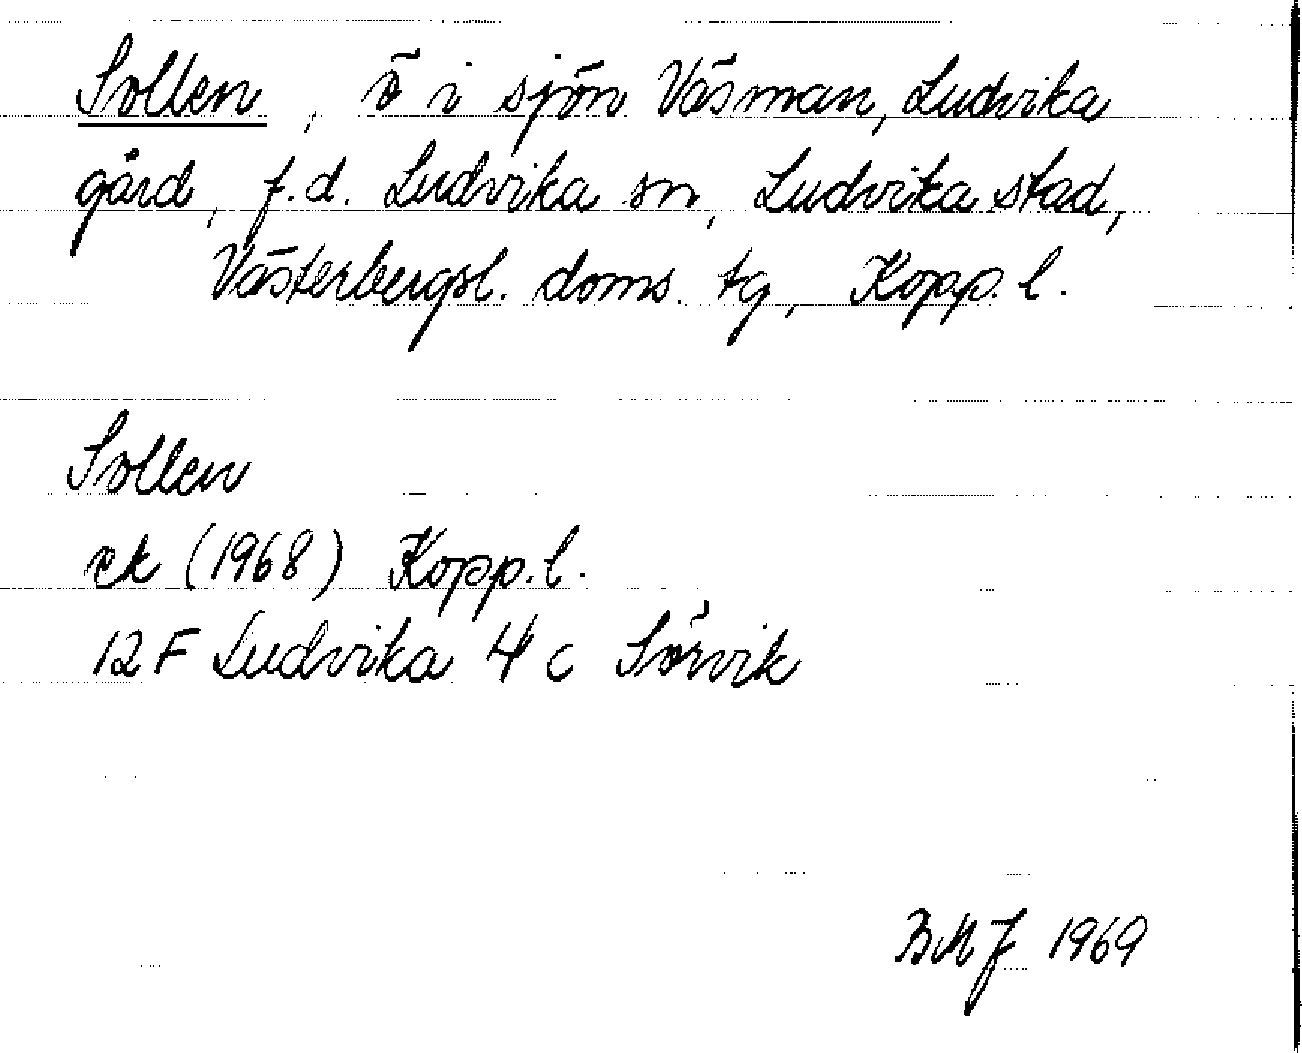 Sollen, ö i sjön Väsman, Ludvika
gård, f.d. Ludvika sn, Ludvika stad,
Västerbergsl. doms. tg, Kopp. l.
Sollen
ek (1968) Kopp. l.
12 F Ludvika 4 c Sörvik
BMJ 1969